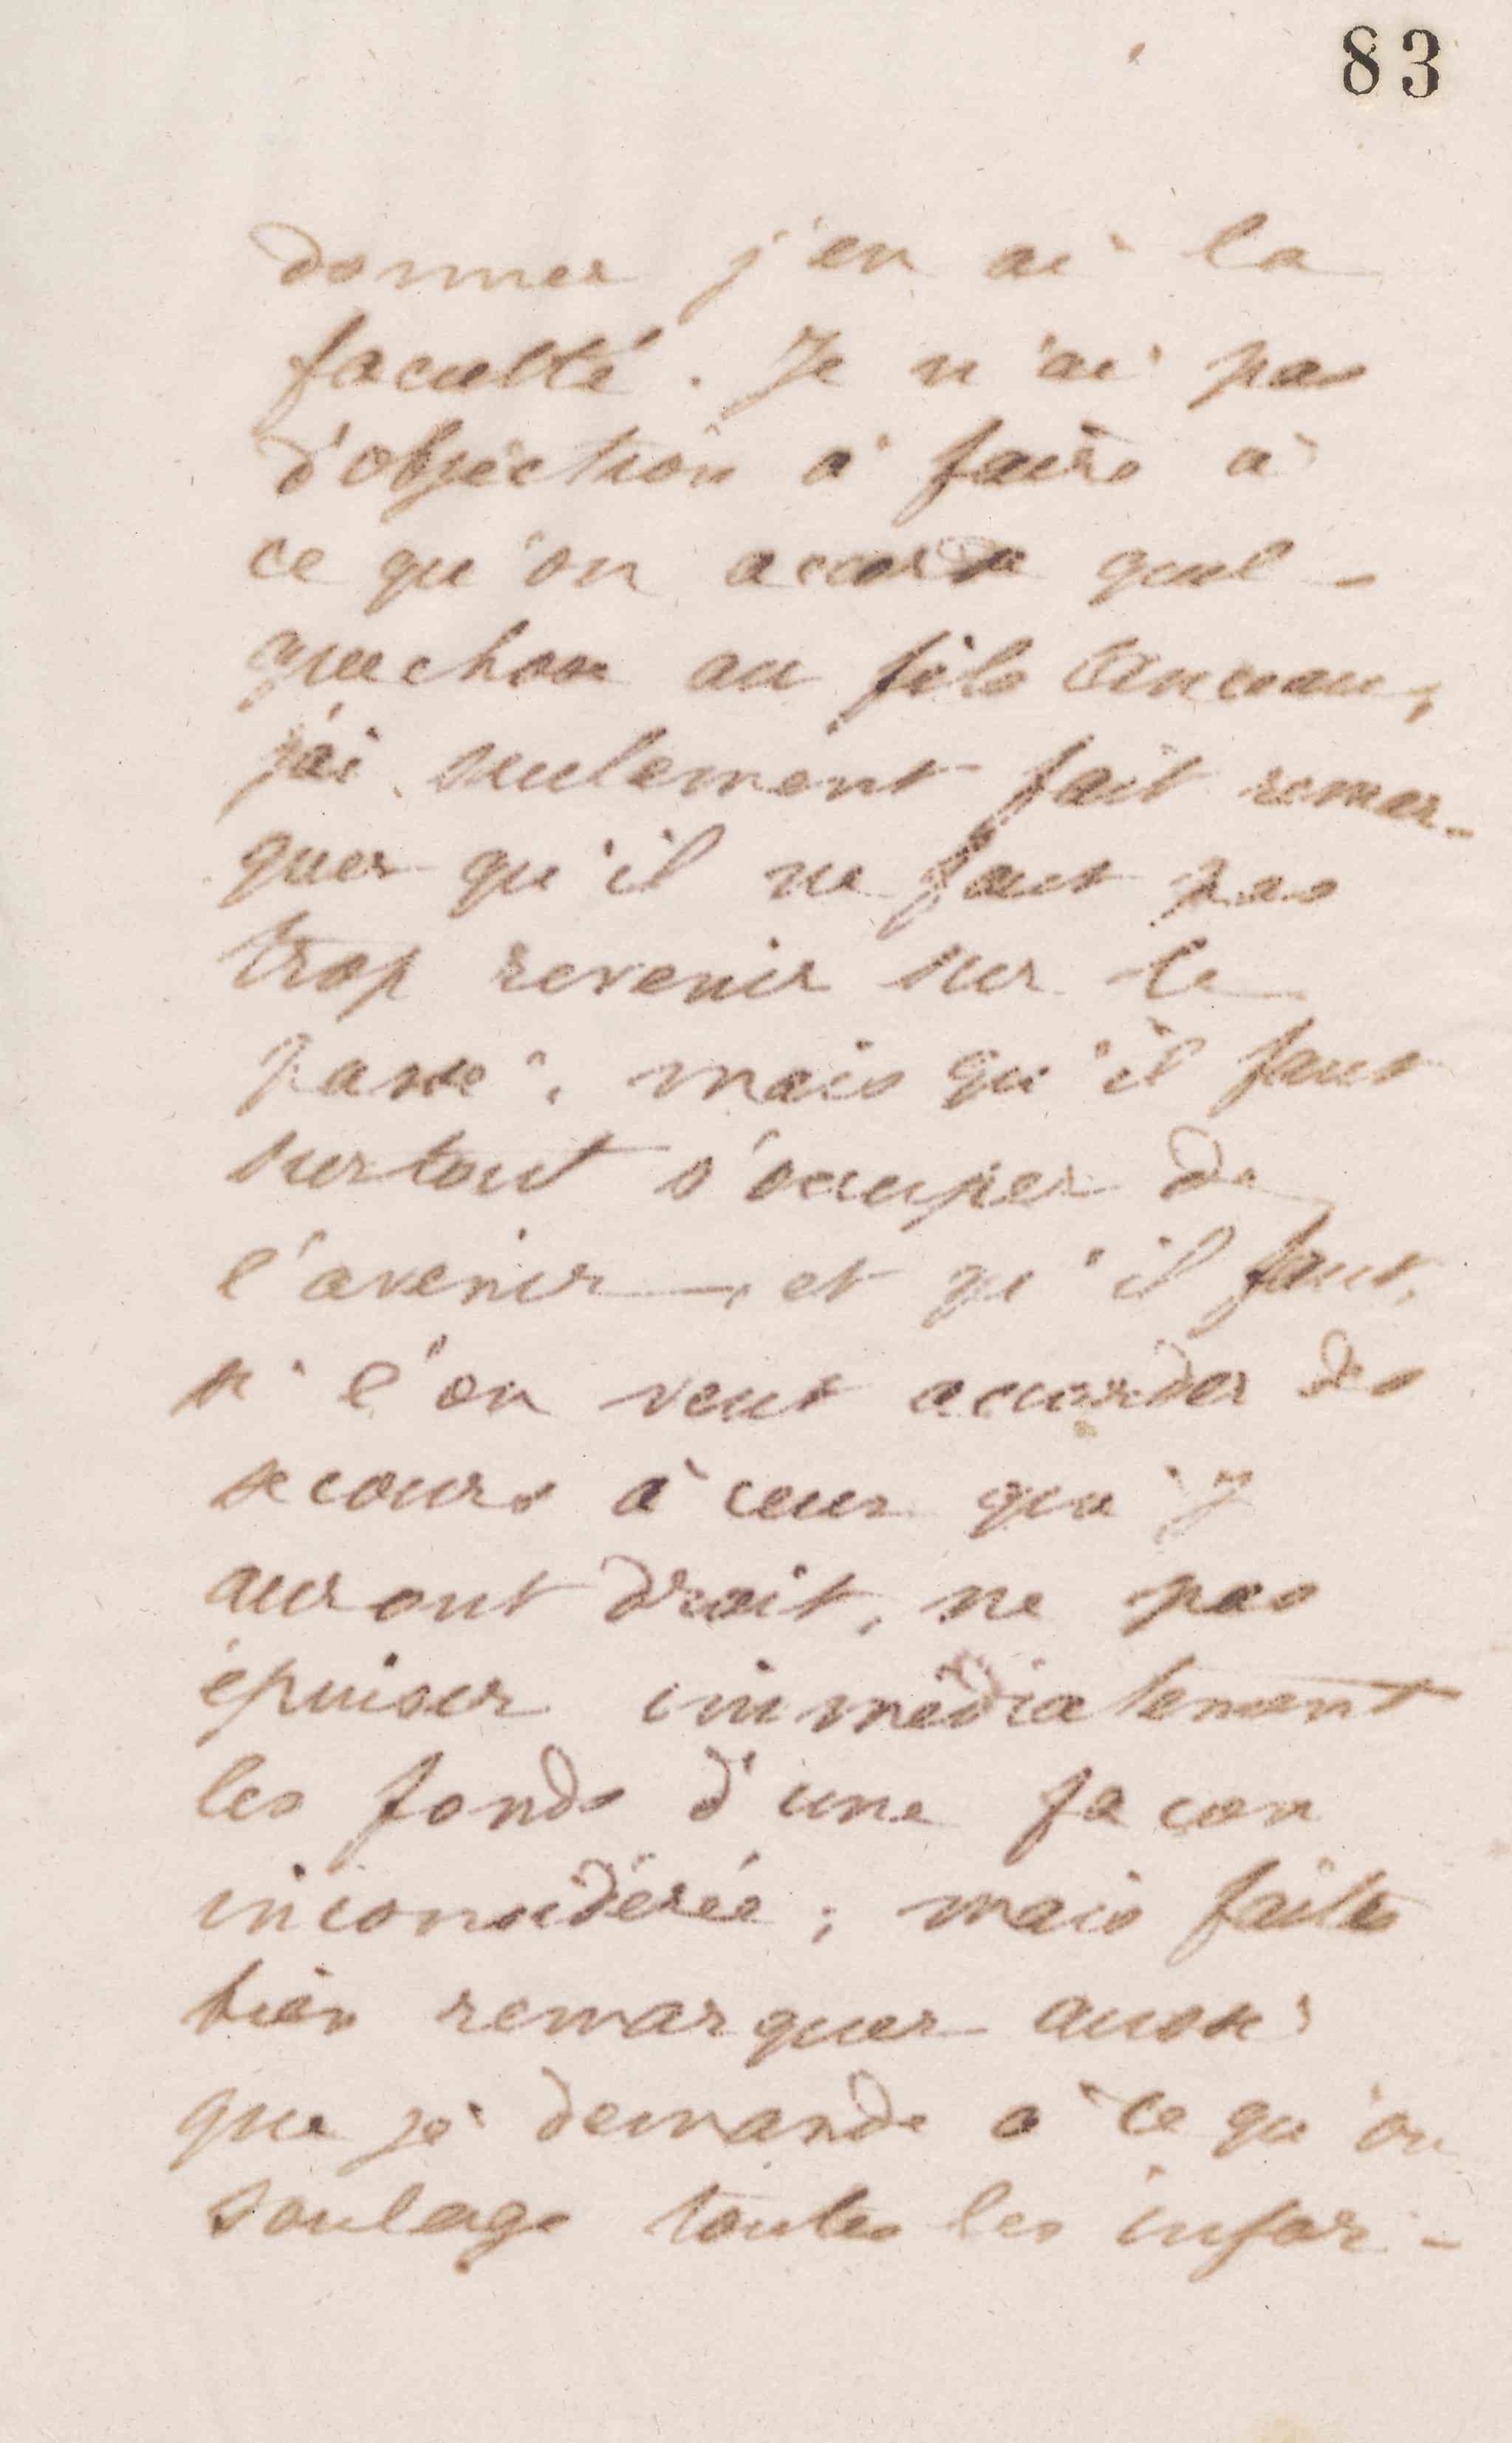 83
donner j'en ai la
faculté. Je n'ai pas
d'objection à faire à
ce qu'on accorde quel-
quechose au fils Anceau,
j'ai seulement fait remar-
quer qu'il ne faut pas
trop revenir sur le
passé, mais qu'il faut
surtout s'occuper de
l'avenir, et qu'il faut,
si l'on veut accorder des
secours à ceux qui y
auront droit, ne pas
épuiser immédiatement
les fonds d'une façon
inconsidérée; mais faites
bien remarquer aussi
que je demande à ce qu'on
soulage toutes les infor-